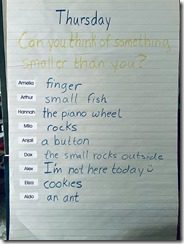 Thursday
Can you think of something
smaller than you?
Amelia finger
Arthur small fish
Hannah the piano wheel
Milo rocks
Anjali a button
Dax the small rocks outside
Alex I'm not here today
Elsie cookies
Aldo an ant